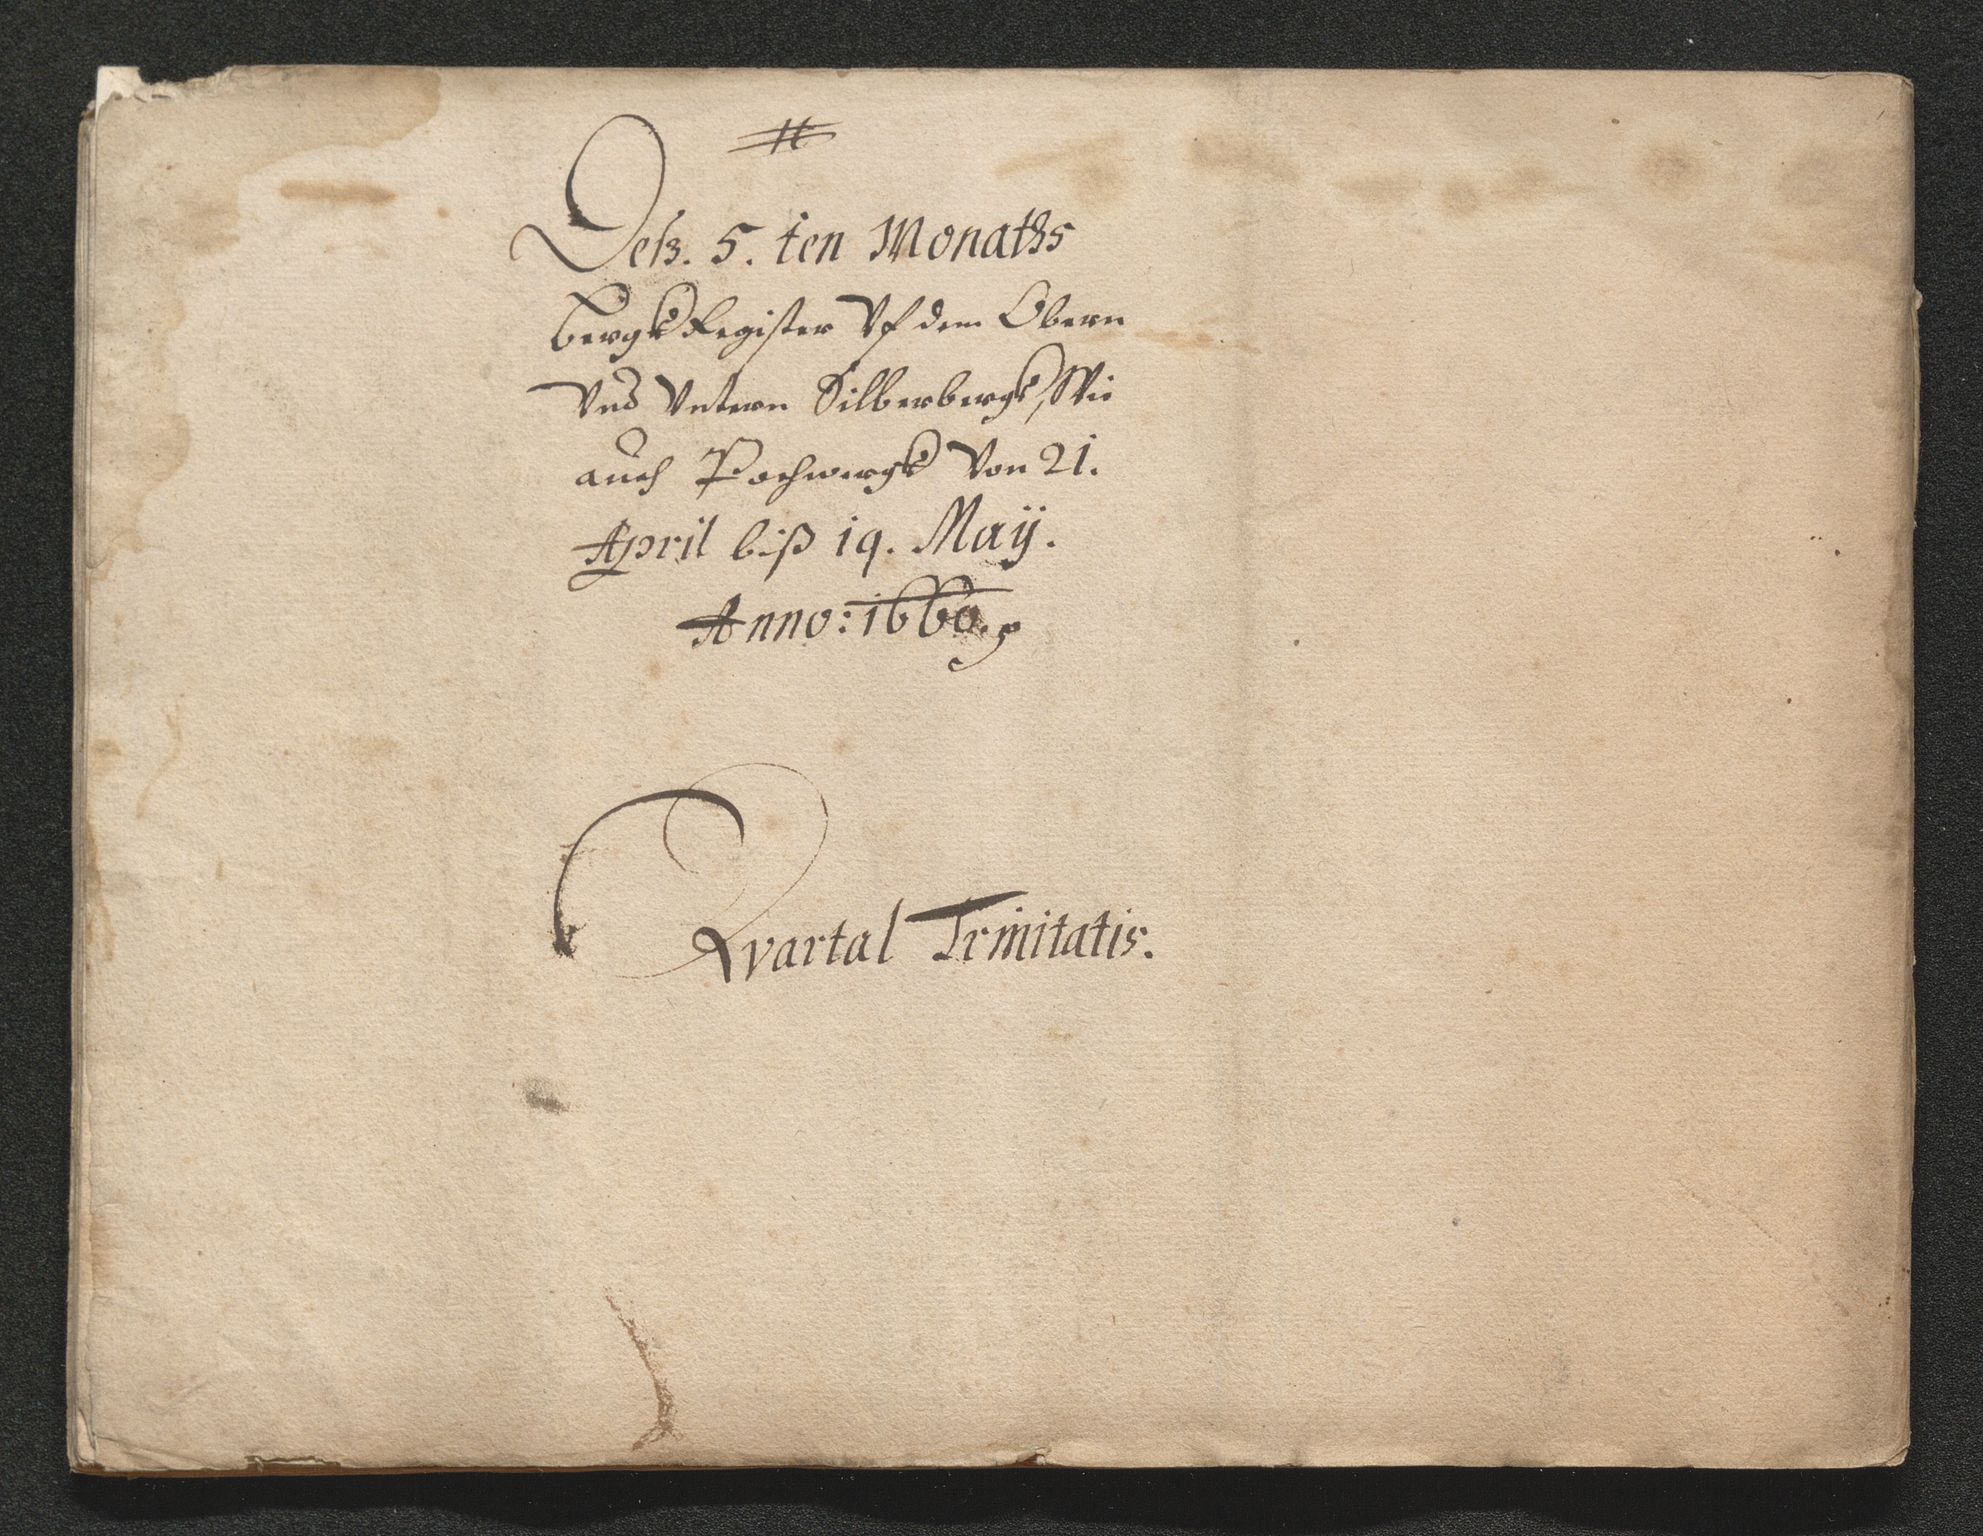 Deß. 5. ten Monaths
bergk Register Vf dem Obern
Vnd Vntern Silberbergk, Wie
auch Pochwergk Von 21.
April biß 19. May.
Anno: 1660.
Qvartal Trinitatis.